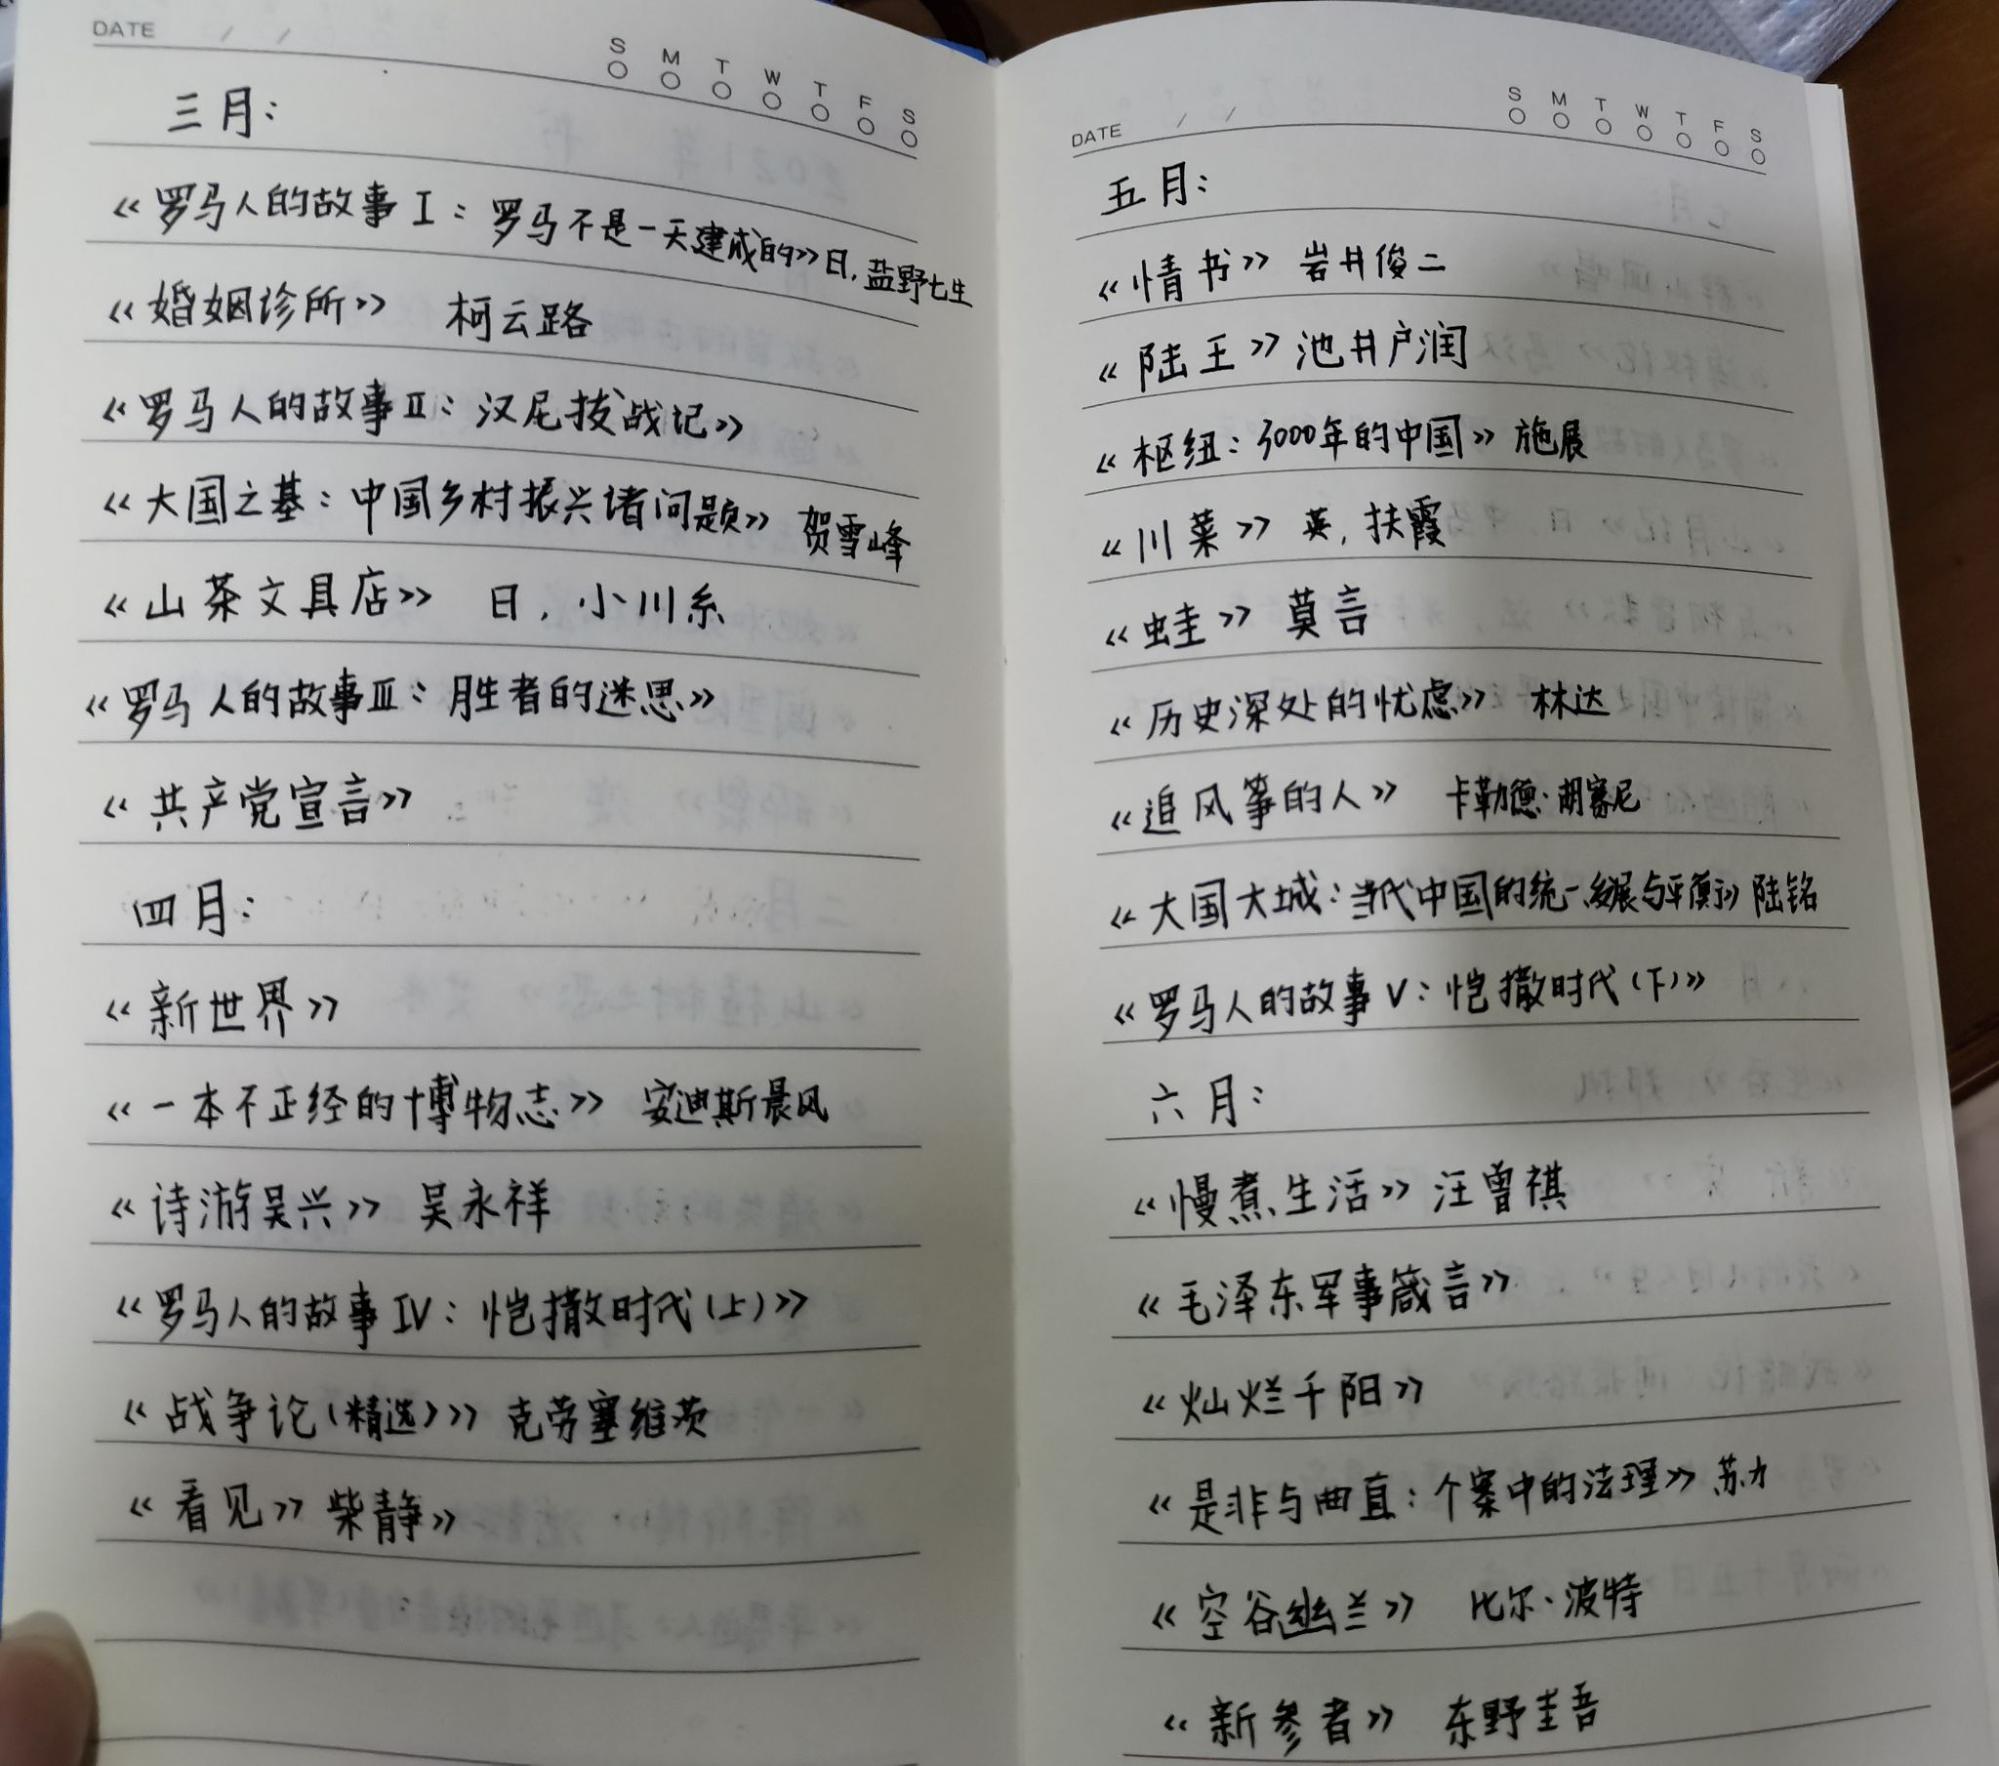 DATE / / S M T W T F S
三月：
《罗马人的故事Ⅰ：罗马不是一天建成的》日，盐野七生
《婚姻诊所》 柯云路
《罗马人的故事Ⅱ：汉尼拔战记》
《大国之基：中国乡村振兴诸问题》 贺雪峰
《山茶文具店》 日，小川糸
《罗马人的故事Ⅲ：胜者的迷思》
《共产党宣言》
四月：
《新世界》
《一本不正经的博物志》 安迪斯晨风
《诗游吴兴》 吴永祥
《罗马人的故事Ⅳ：恺撒时代(上)》
《战争论(精选)》 克劳塞维茨
《看见》柴静》
DATE / / S M T W T F S
五月：
《情书》 岩井俊二
《陆王》池井户润
《枢纽：3000年的中国》施展
《川菜》 英，扶霞
《蛙》 莫言
《历史深处的忧虑》 林达
《追风筝的人》 卡勒德·胡赛尼
《大国大城：当代中国的统一、发展与平衡》陆铭
《罗马人的故事Ⅴ：恺撒时代(下)》
六月：
《慢煮生活》汪曾祺
《毛泽东军事箴言》
《灿烂千阳》
《是非与曲直：个案中的法理》苏力
《空谷幽兰》 比尔·波特
《新参者》 东野圭吾